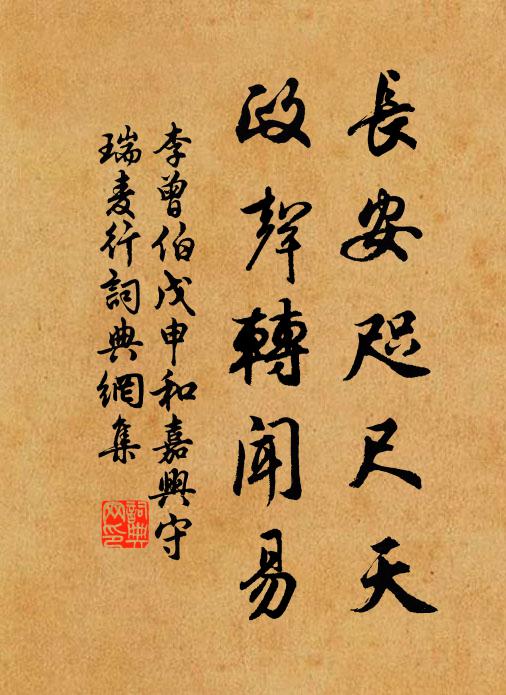 長安咫尺天
政聲轉聞易
李曾伯戊申和嘉興守
瑞麦行詞典網集
詞典
网印